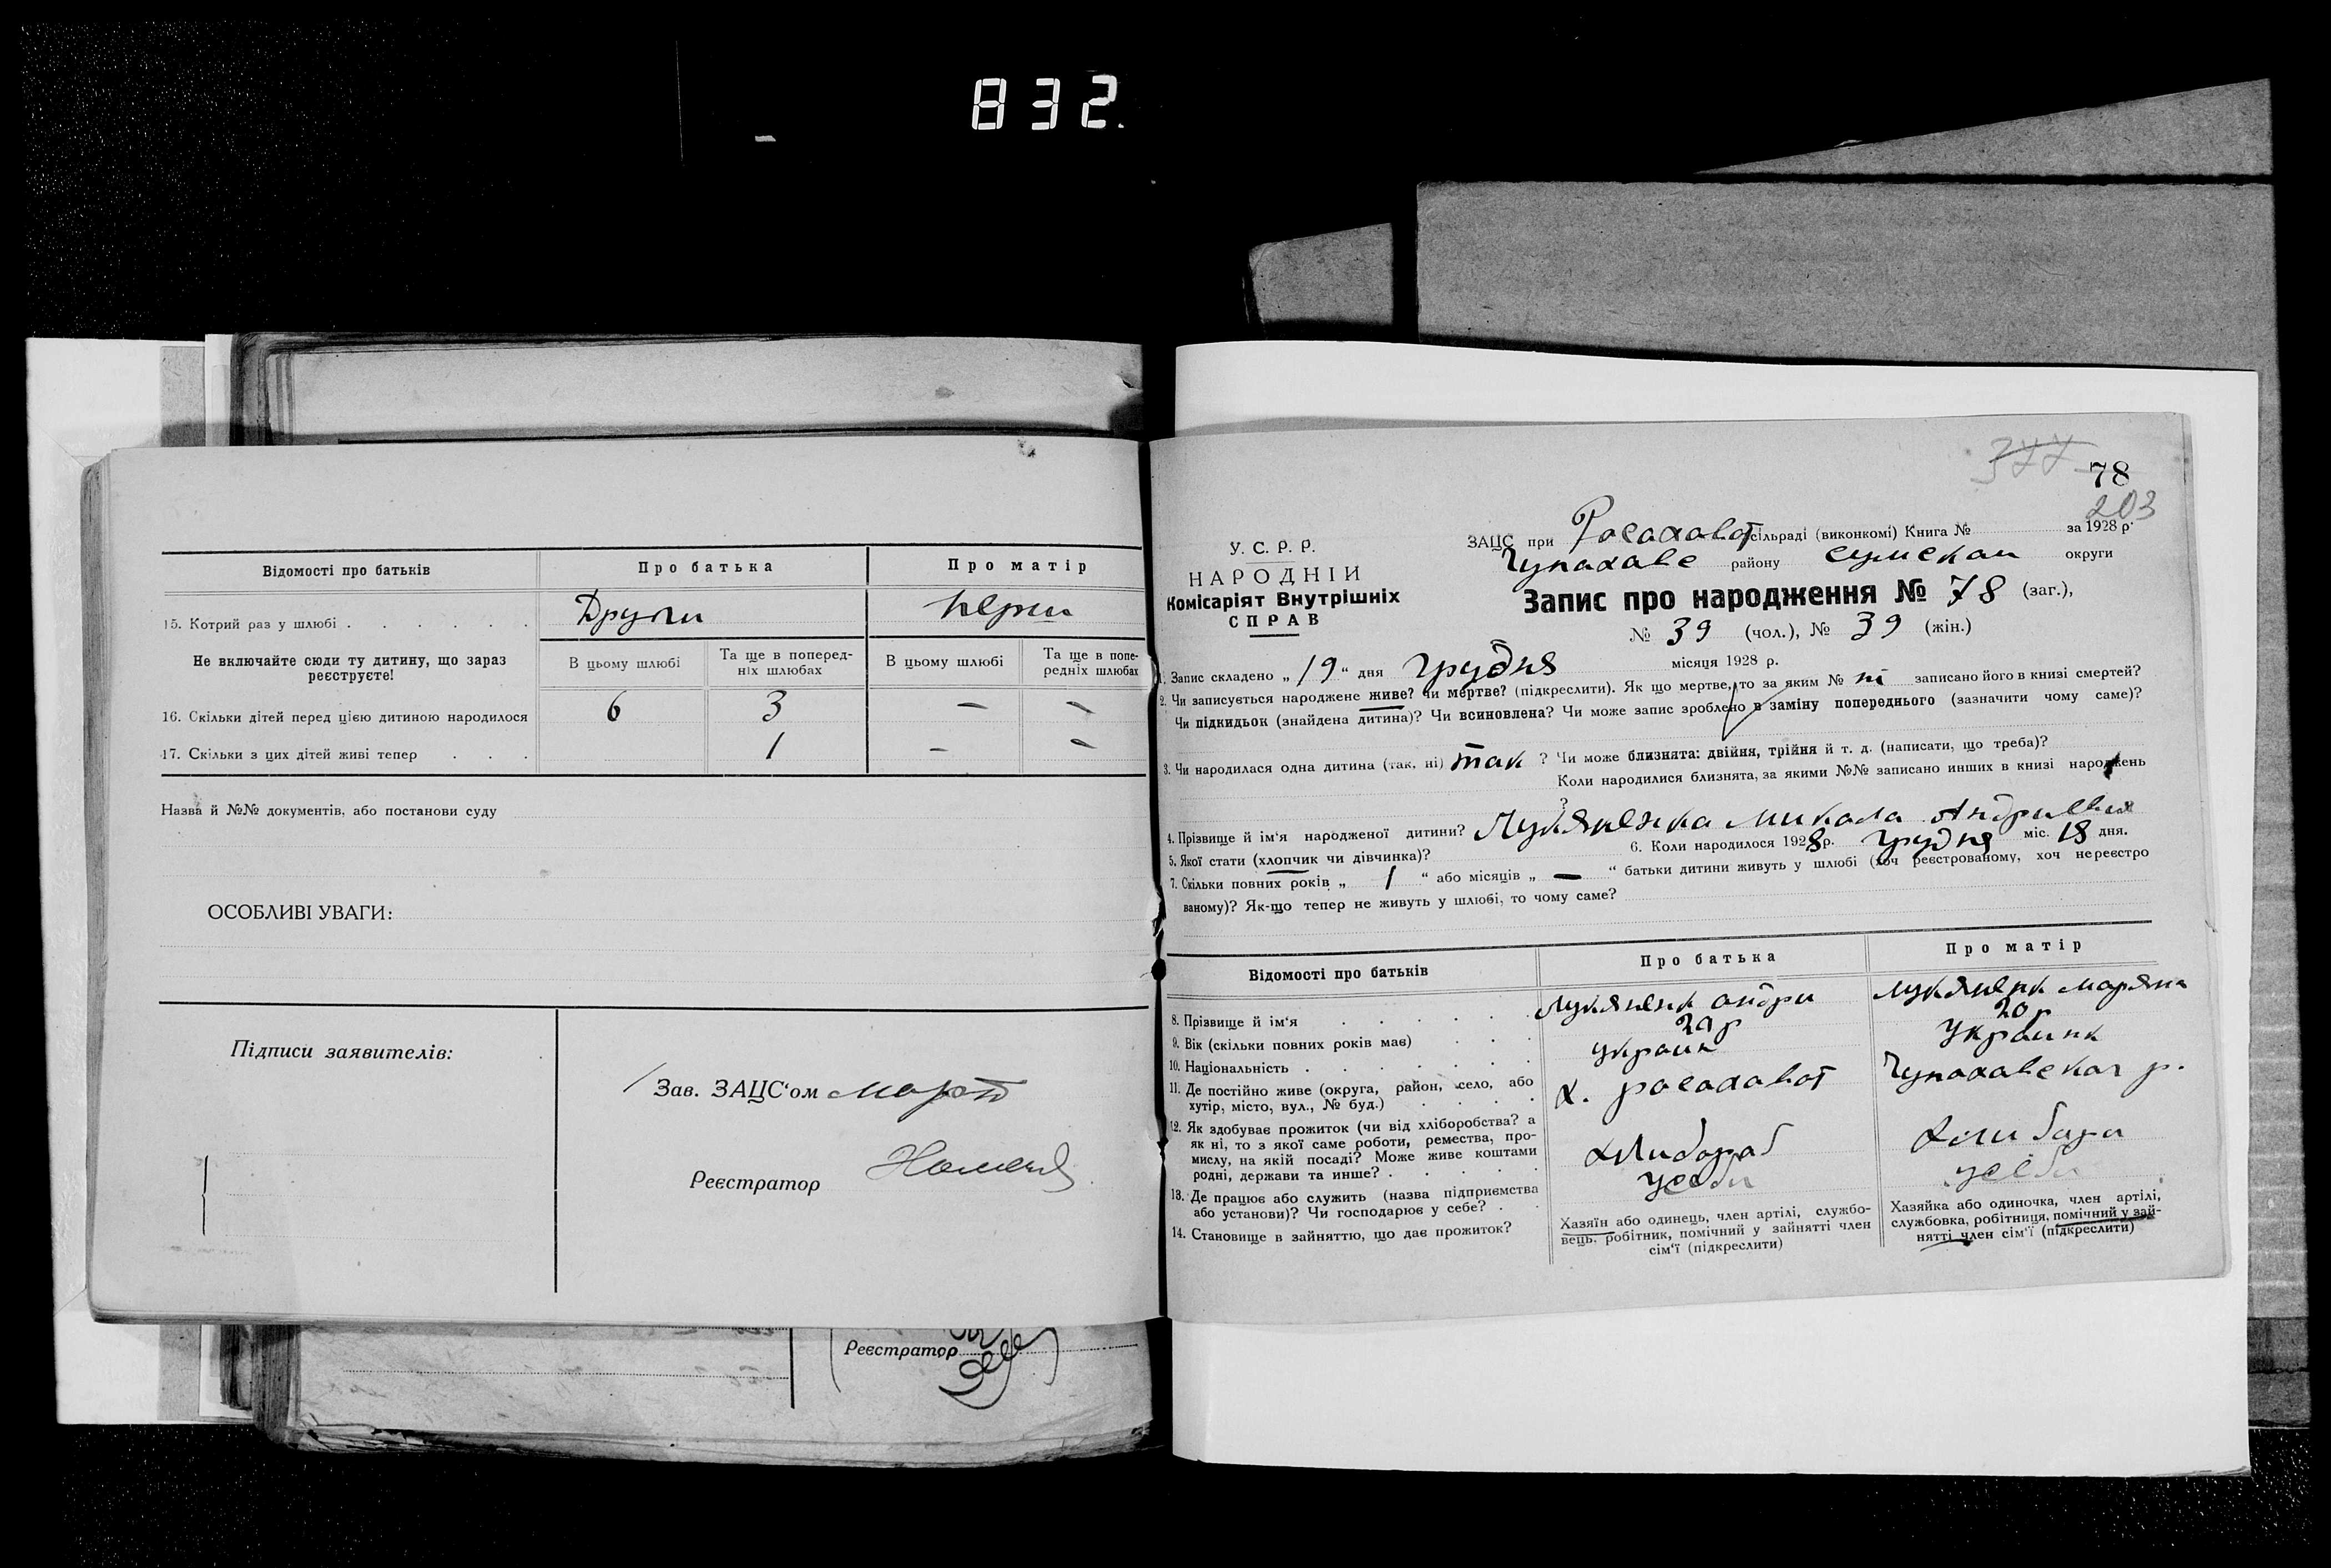 832.
Відомості про батьків
Про батька
Про матір
15. Котрий раз у шлюбі . . . . . .
Други
перши
Не включайте сюди ту дитину, що зараз
реєструєте!
В цьому шлюбі
Та ще в поперед-
ніх шлюбах
В цьому шлюбі
Та ще в попе-
редніх шлюбах
16. Скільки дітей перед цією дитиною народилося
6
3
–
–
17. Скільки з цих дітей живі тепер . . .
1
–
–
Назва й №№ документів, або постанови суду
ОСОБЛИВІ УВАГИ:
Підписи заявителів:
Зав. ЗАЦС‘ом
Реєстратор
Реєстратор
377
78
203
У. С. Р. Р.
НАРОДНІЙ
Комісаріят Внутрішніх
СПРАВ
ЗАЦС при Росохават сільраді (виконкомі) Книга № за 1928 р.
Чупахаве району сумскои округи
Запис про народження № 78 (заг.),
№ 39 (чол.), № 39 (жін.)
1. Запис складено „19“ дня грудня місяця 1928 р.
2. Чи записується народжене живе? чи мертве? (підкреслити). Як що мертве, то за яким № ні записано його в книзі смертей?
Чи підкидьок (знайдена дитина)? Чи всиновлена? Чи може запис зроблено в заміну попереднього (зазначити чому саме)?
3. Чи народилася одна дитина (так, ні) так ? Чи може близнята: двійня, трійня й т. д. (написати, що треба)?
Коли народилися близнята, за якими №№ записано инших в книзі народжень
?
4. Прізвище й ім‘я народженої дитини? Лукяненка Микола Андриевия
5. Якої стати (хлопчик чи дівчинка)? 6. Коли народилося 1928 р. грудня міс. 18 дня.
7. Скільки повних років „ 1 “ або місяців „ — “ батьки дитини живуть у шлюбі (хоч реєстрованому, хоч нереєстро
ваному)? Як-що тепер не живуть у шлюбі, то чому саме?
Відомості про батьків
Про батька
Про матір
8. Прізвище й ім‘я . . . . . .
Лукяненк андри
Лукяненк Марян
9. Вік (скільки повних років має) . . .
29 р
20 р
10. Національність . . . . . . .
украин
Украинк
11. Де постійно живе (округа, район, село, або
хутір, місто, вул., № буд.) . . . .
х. росохават
Чупахавскаг р.
12. Як здобуває прожиток (чи від хліборобства? а
як ні, то з якої саме роботи, ремества, про-
мислу, на якій посаді? Може живе коштами
родні, держави та инше? . . . . .
хлибораб
13. Де працює або служить (назва підприємства
або установи)? Чи господарює у себе? . .
усеби
усеби
14. Становище в зайняттю, що дає прожиток?
Хазяїн або одинець, член артілі, службо-
вець, робітник, помічний у зайнятті член
сім‘ї (підкреслити)
Хазяйка або одиночка, член артілі,
службовка, робітниця, помічний у зай-
нятті член сім‘ї (підкреслити)